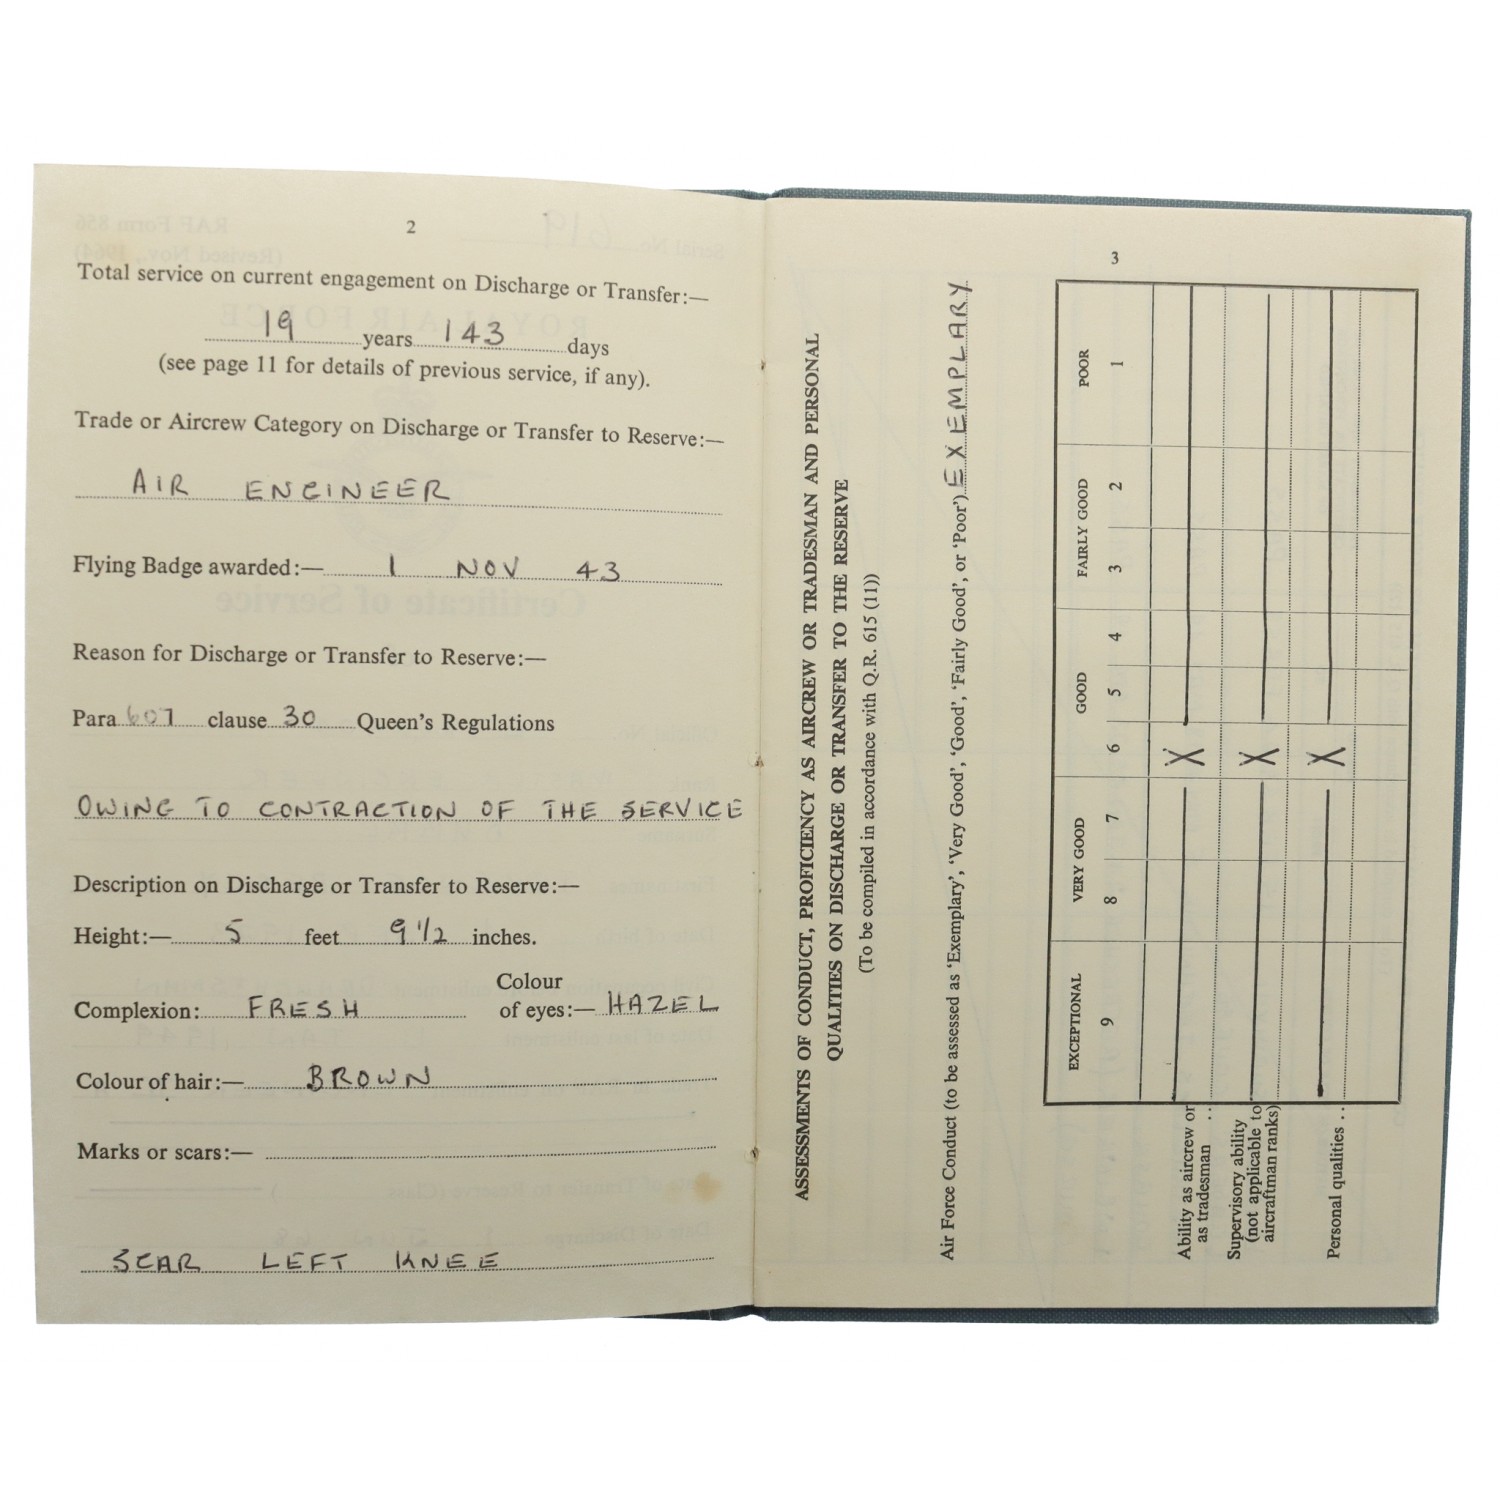 2
Total service on current engagement on Discharge or Transfer:—
19 years 143 days
(see page 11 for details of previous service, if any).
Trade or Aircrew Category on Discharge or Transfer to Reserve:—
AIR ENGINEER
Flying Badge awarded:— 1 NOV 43
Reason for Discharge or Transfer to Reserve:—
Para 607 clause 30 Queen's Regulations
OWING TO CONTRACTION OF THE SERVICE
Description on Discharge or Transfer to Reserve:—
Height:— 5 feet 9 1/2 inches.
Complexion: FRESH Colour of eyes:— HAZEL
Colour of hair:— BROWN
Marks or scars:—
SCAR LEFT KNEE
3
ASSESSMENTS OF CONDUCT, PROFICIENCY AS AIRCREW OR TRADESMAN AND PERSONAL
QUALITIES ON DISCHARGE OR TRANSFER TO THE RESERVE
(To be compiled in accordance with Q.R. 615 (11))
Air Force Conduct (to be assessed as 'Exemplary', 'Very Good', 'Good', 'Fairly Good', or 'Poor') EXEMPLARY
EXCEPTIONAL VERY GOOD GOOD FAIRLY GOOD POOR
9 8 7 6 5 4 3 2 1
Ability as aircrew or
as tradesman .. X
Supervisory ability
(not applicable to
aircraftman ranks) X
Personal qualities .. X